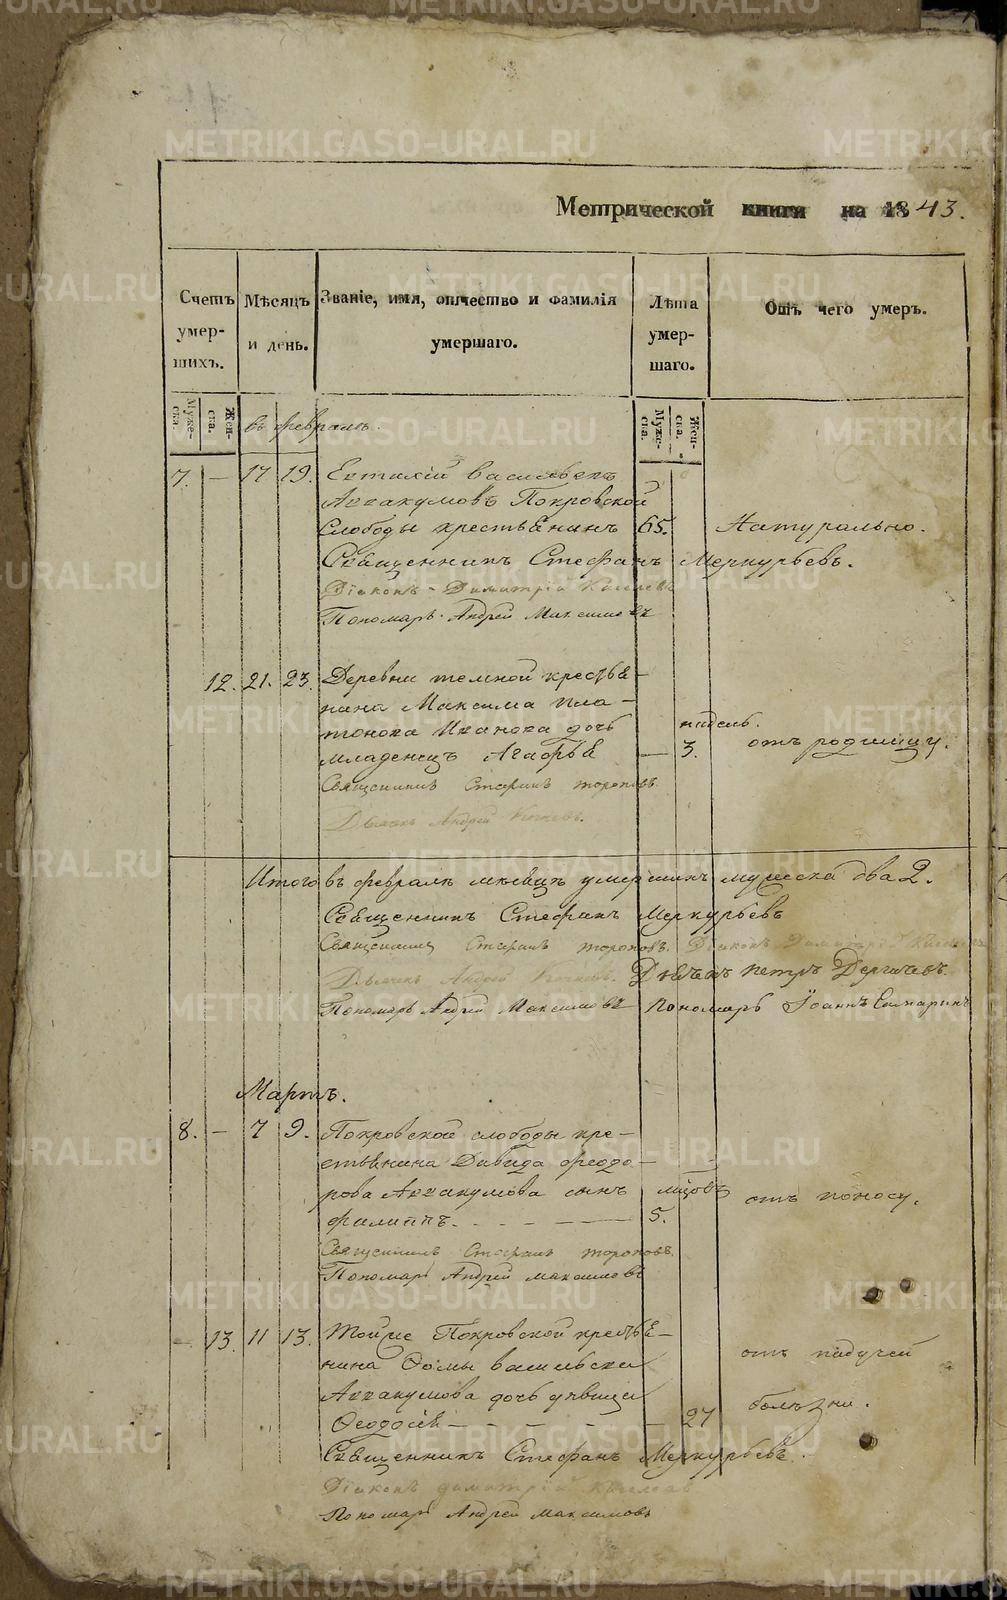 Метрической книги на 1843.
Счетъ умерших.
Мѣсяцъ и день.
Званіе, имя, отчество и фамилія умершаго.
Лѣта умершаго.
Отъ чего умеръ.
Мужеска. Женска.
Мужеска. Женска.
въ февралѣ.
7. — 17 19. Евтихій Васильевъ
Аввакумовъ Покровской
слободы крестьянинъ 65. Натурально.
Священникъ Стефанъ Меркурьевъ.
Діаконъ Димитрій Киселевъ
Пономарь Андрей Максимовъ
12. 21. 23. Деревни темной крестья-
нина Максима Пла-
тонова Иванова дочь недель.
младенецъ Агафья — 3. отъ родимцу.
Священникъ Стефанъ Тороповъ.
Дьячекъ Андрей
Итого въ февралѣ мѣсяцѣ умершихъ мужеска два 2.
Священникъ Стефанъ Меркурьевъ
Священникъ Стефанъ Тороповъ. Діаконъ Димитрій Киселевъ
Дьячекъ Андрей Дьячекъ Петръ Дергачевъ.
Пономарь Андрей Максимовъ Пономарь Іоаннъ
Мартъ.
8. — 7 9. Покровской слободы кре-
стьянина Давида Феодо-
рова Аввакумова сынъ мѣсцовъ отъ поносу.
Филиппъ. 5.
Священникъ Стефанъ Тороповъ.
Пономарь Андрей Максимовъ
— 13. 11 13. Той же Покровской крестья-
нина Фомы Васильева отъ падучей
Аввакумова дочь дѣвица болѣзни.
Феодосія — 27
Священникъ Стефанъ Меркурьевъ.
Діаконъ Димитрій Киселевъ
Пономарь Андрей Максимовъ
METRIKI.GASO-URAL.RU